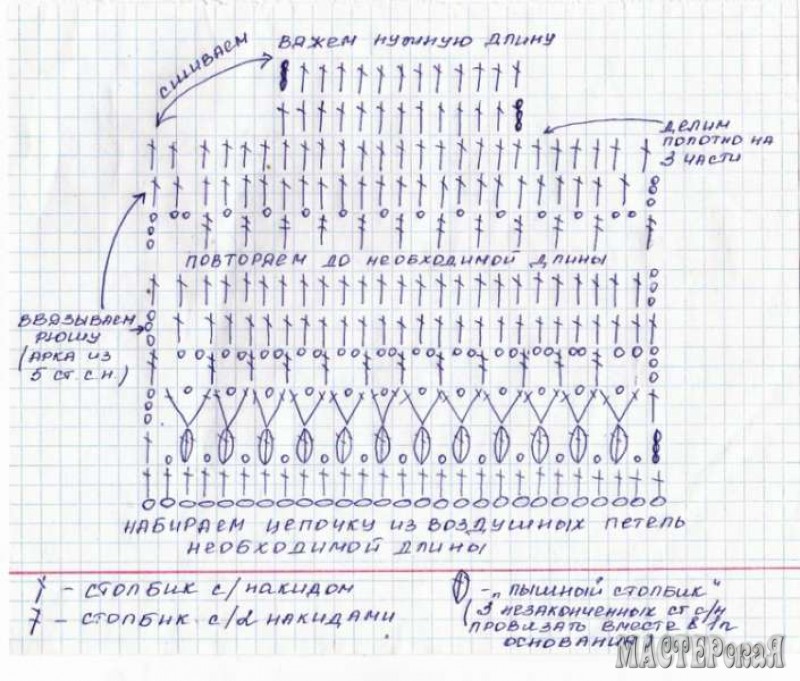 ВЯЖЕМ НУЖНУЮ ДЛИНУ
СШИВАЕМ
ДЕЛИМ
ПОЛОТНО НА
3 ЧАСТИ
ПОВТОРЯЕМ ДО НЕОБХОДИМОЙ ДЛИНЫ
ВВЯЗЫВАЕМ
РЮШУ
(АРКА ИЗ
5 СТ. С.Н.)
НАБИРАЕМ ЦЕПОЧКУ ИЗ ВОЗДУШНЫХ ПЕТЕЛЬ
НЕОБХОДИМОЙ ДЛИНЫ
- СТОЛБИК С/НАКИДОМ
- СТОЛБИК С/2 НАКИДАМИ
- „ПЫШНЫЙ СТОЛБИК"
(3 НЕЗАКОНЧЕННЫХ СТ С/Н
ПРОВЯЗАТЬ ВМЕСТЕ В 1П
ОСНОВАНИЯ)
МАСТЕРскаЯ